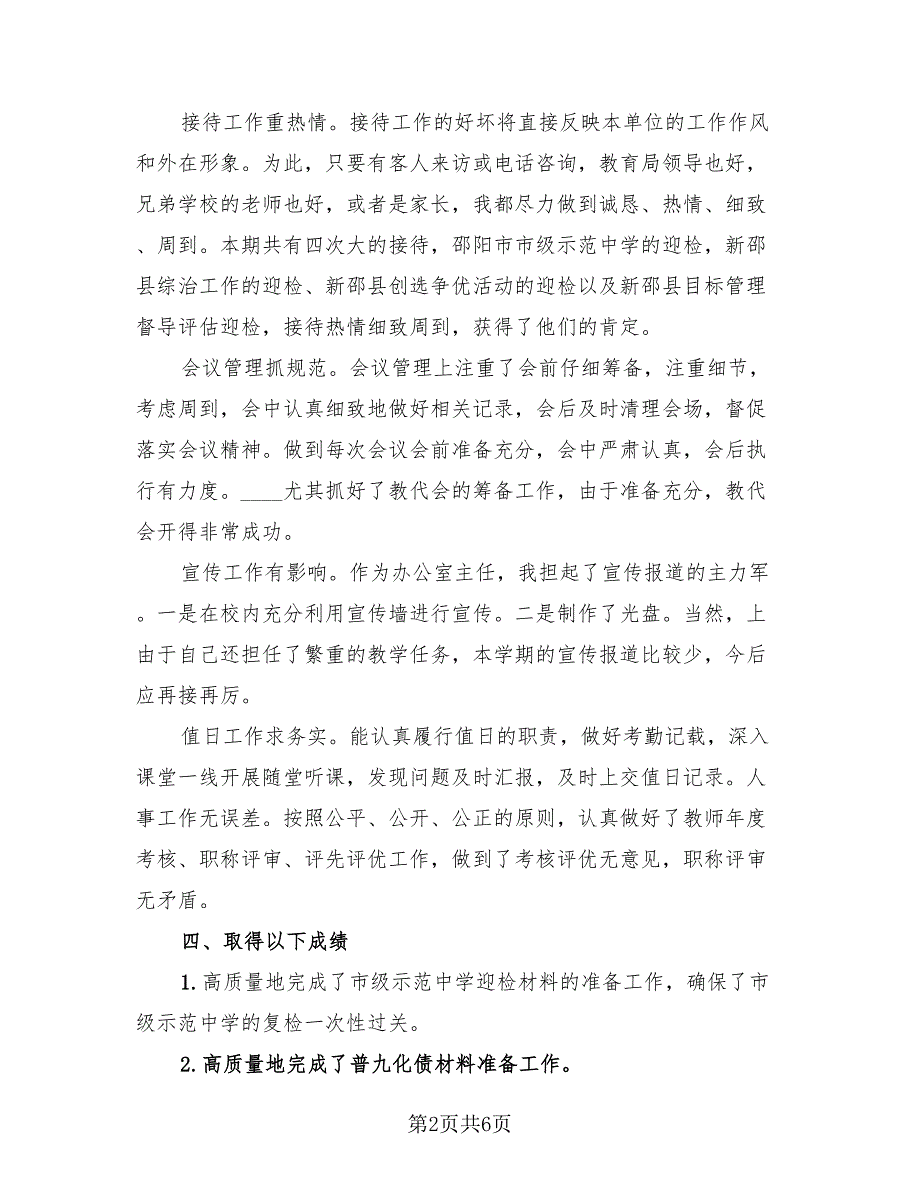 接待工作重热情。接待工作的好坏将直接反映本单位的工作作风
和外在形象。为此，只要有客人来访或电话咨询，教育局领导也好，
兄弟学校的老师也好，或者是家长，我都尽力做到诚恳、热情、细致
、周到。本期共有四次大的接待，邵阳市市级示范中学的迎检，新邵
县综治工作的迎检、新邵县创选争优活动的迎检以及新邵县目标管理
督导评估迎检，接待热情细致周到，获得了他们的肯定。
会议管理抓规范。会议管理上注重了会前仔细筹备，注重细节，
考虑周到，会中认真细致地做好相关记录，会后及时清理会场，督促
落实会议精神。做到每次会议会前准备充分，会中严肃认真，会后执
行有力度。____尤其抓好了教代会的筹备工作，由于准备充分，教代
会开得非常成功。
宣传工作有影响。作为办公室主任，我担起了宣传报道的主力军
。一是在校内充分利用宣传墙进行宣传。二是制作了光盘。当然，上
由于自己还担任了繁重的教学任务，本学期的宣传报道比较少，今后
应再接再厉。
值日工作求务实。能认真履行值日的职责，做好考勤记载，深入
课堂一线开展随堂听课，发现问题及时汇报，及时上交值日记录。人
事工作无误差。按照公平、公开、公正的原则，认真做好了教师年度
考核、职称评审、评先评优工作，做到了考核评优无意见，职称评审
无矛盾。
四、取得以下成绩
1.高质量地完成了市级示范中学迎检材料的准备工作，确保了市
级示范中学的复检一次性过关。
2.高质量地完成了普九化债材料准备工作。
第2页共6页